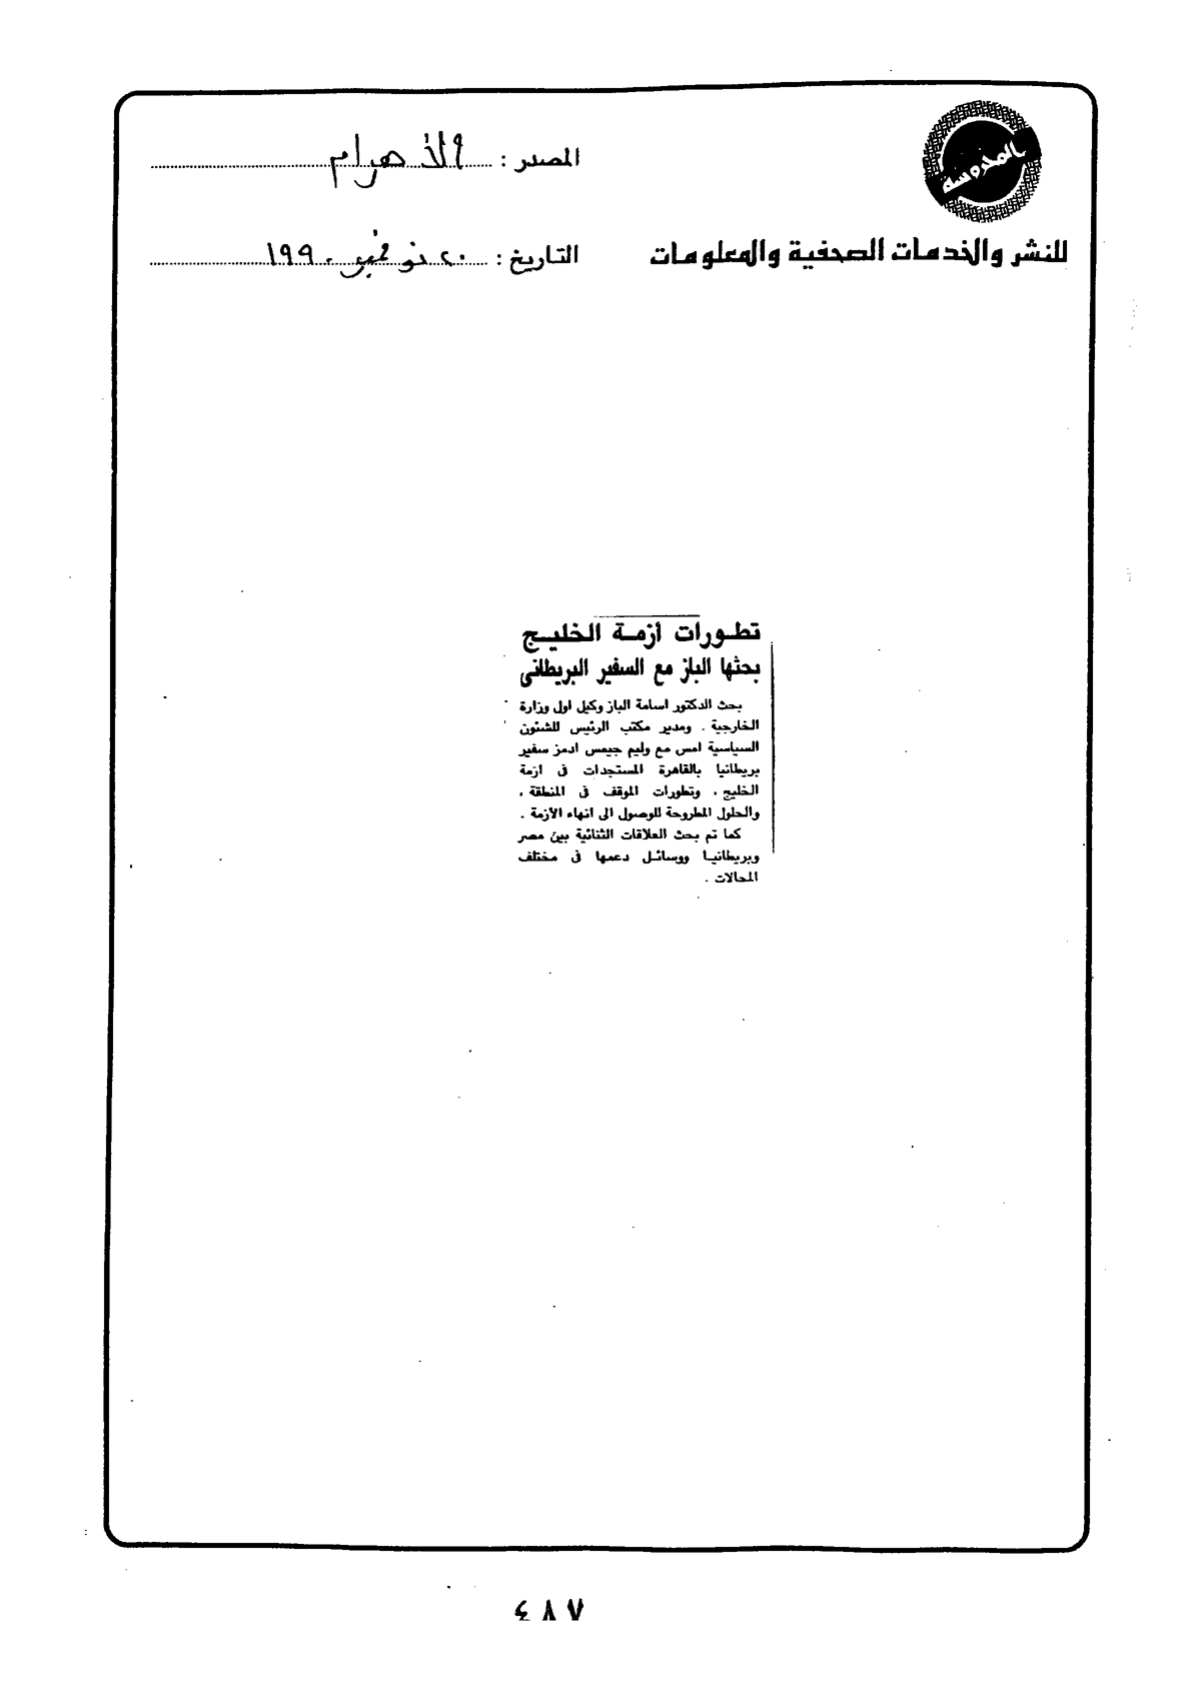 المحروسة
للنشر والخدمات الصحفية والمعلومات
المصدر : الأهرام
التاريخ : ٢٠ نوفمبر ١٩٩٠
تطورات أزمة الخليج
بحثها الباز مع السفير البريطانى
بحث الدكتور اسامة الباز وكيل اول وزارة
الخارجية . ومدير مكتب الرئيس للشئون
السياسية امس مع وليم جيمس ادمز سفير
بريطانيا بالقاهرة المستجدات فى ازمة
الخليج ، وتطورات الموقف فى المنطقة ،
والحلول المطروحة للوصول الى انهاء الأزمة .
كما تم بحث العلاقات الثنائية بين مصر
وبريطانيا ووسائل دعمها فى مختلف
المجالات .
٤٨٧